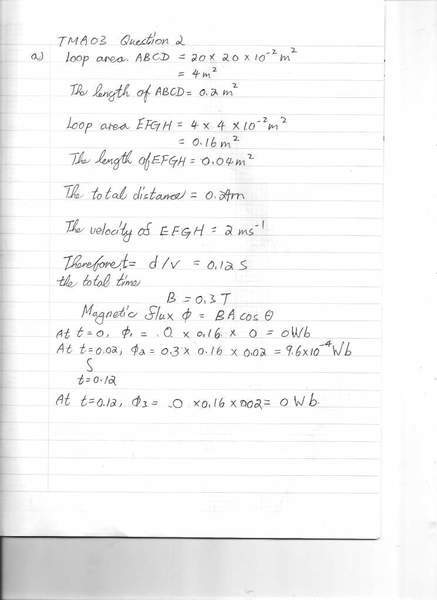 TMA03 Question 2
a) Loop area ABCD = 20 x 20 x 10⁻² m²
= 4 m²
The length of ABCD = 0.2 m²
Loop area EFGH = 4 x 4 x 10⁻² m²
= 0.16 m²
The length of EFGH = 0.04 m²
The total distance = 0.24m
The velocity of EFGH = 2 ms⁻¹
Therefore, t = d / v = 0.12 S
the total time
B = 0.3 T
Magnetic flux ϕ = BA cos θ
At t = 0, ϕ₁ = .0 x 0.16 x 0 = 0Wb
At t = 0.02, ϕ₂ = 0.3 x 0.16 x 0.02 = 9.6x10⁻⁴ Wb
S
t = 0.12
At t = 0.12, ϕ₃ = .0 x 0.16 x 002 = 0 Wb.